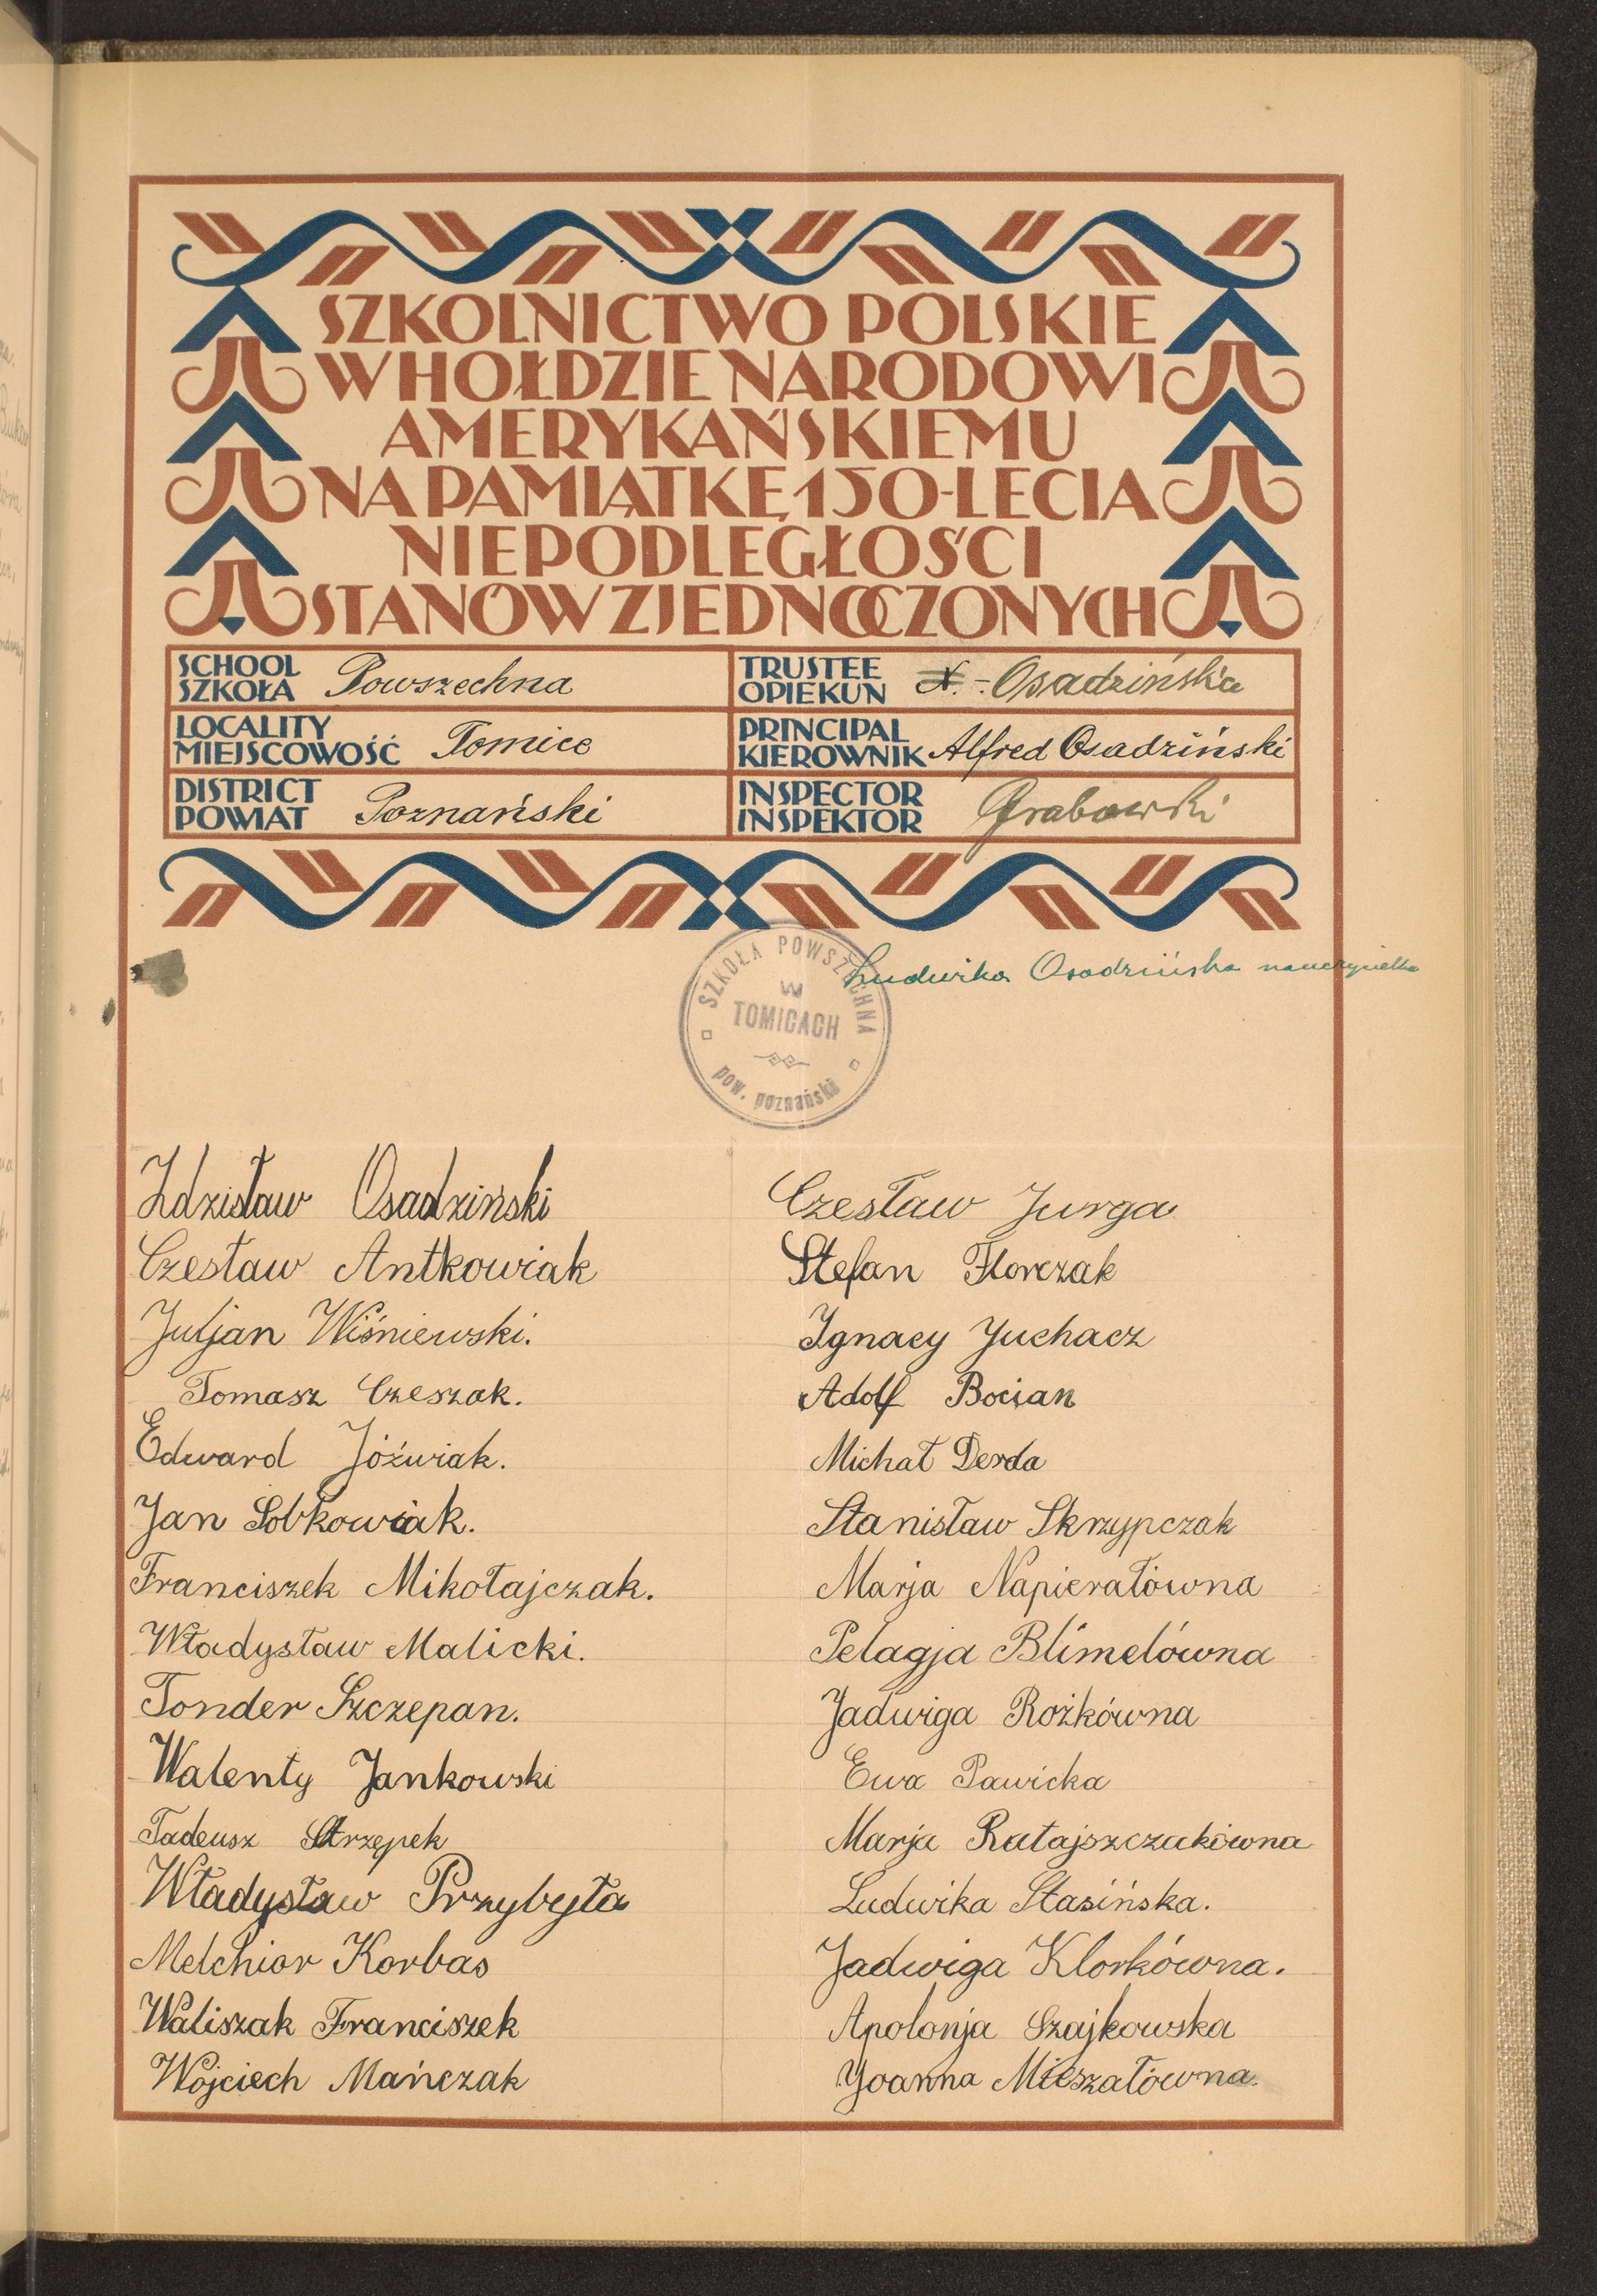 SZKOLNICTWO POLSKIE
W HOŁDZIE NARODOWI
AMERYKAŃSKIEMU
NA PAMIĄTKĘ 150-LECIA
NIEPODLEGŁOŚCI
STANÓW ZJEDNOCZONYCH
SCHOOL
SZKOŁA Powszechna
TRUSTEE
OPIEKUN Osadzińska
LOCALITY
MIEJSCOWOŚĆ Tomice
PRINCIPAL
KIEROWNIK Alfred Osadziński
DISTRICT
POWIAT Poznański
INSPECTOR
INSPEKTOR Grabowski
Ludwika Osadzińska nauczycielka
SZKOŁA POWSZECHNA
W
TOMICACH
pow. poznański
Zdzisław Osadziński
Czesław Antkowiak
Juljan Wiśniewski.
Tomasz Czeszak.
Edward Jóźwiak.
Jan Sobkowiak.
Franciszek Mikołajczak.
Władysław Malicki.
Tonder Szczepan.
Walenty Jankowski
Tadeusz Strzępek
Władysław Przybyła
Melchior Korbas
Waliszak Franciszek
Wojciech Mańczak
Czesław Jurga
Stefan Florczak
Ignacy Juchacz
Adolf Bocian
Michał Derda
Stanisław Skrzypczak
Marja Napierałówna
Pelagja Blimelówna
Jadwiga Rożkówna
Ewa Pawicka
Marja Ratajszczakówna
Ludwika Stasińska.
Jadwiga Klorkówna.
Apolonja Szajkowska
Joanna Mieszałówna.